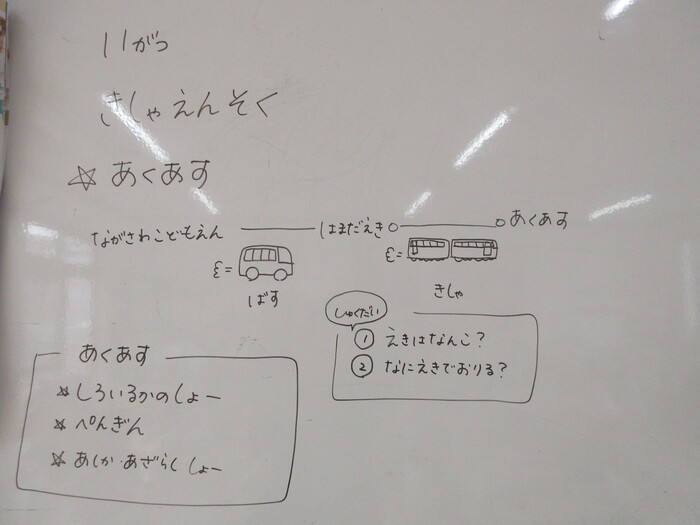 11がつ
きしゃえんそく
☆ あくあす
ながさわこどもえん はまだえき あくあす
ばす きしゃ
しゅくだい
① えきはなんこ？
② なにえきでおりる？
あくあす
☆ しろいるかのしょー
☆ ぺんぎん
☆ あしか・あざらし しょー